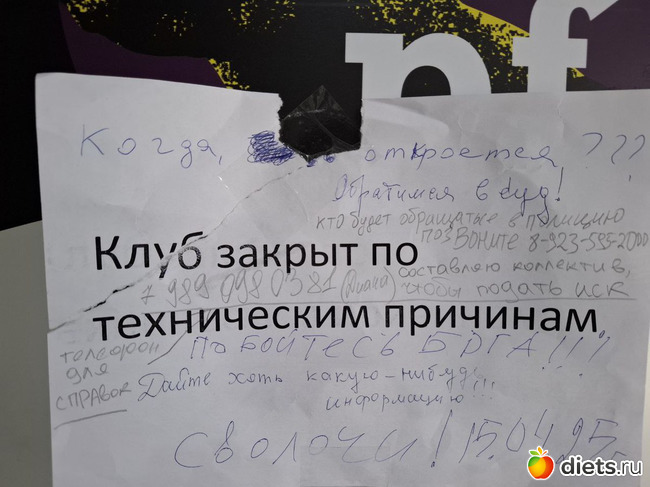 pf
Когда, откроется ???
Обратимся в суд!
кто будет обращаться в полицию
позвоните 8-923-595-2000
Клуб закрыт по
7 989 098 0381 (Диана) составляю коллектив,
чтобы подать иск
техническим причинам
телефон
для
справок
Побойтесь БОГА!!!
Дайте хоть какую-нибудь
информацию!!!
Сволочи! 15.04.25
diets.ru